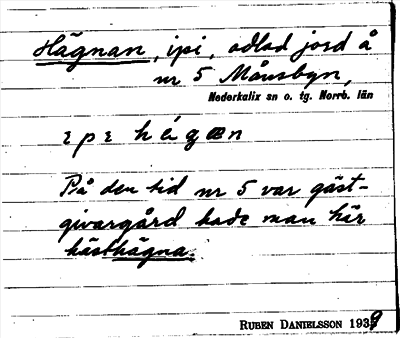 Hägnan, ipi, odlad jord å
nr 5 Månsbyn,
Nederkalix sn o. tg. Norrb. län
ɪpɪ hégœn
På den tid nr 5 var gäst-
givargård hade man här
hästhägna.
RUBEN DANIELSSON 1939